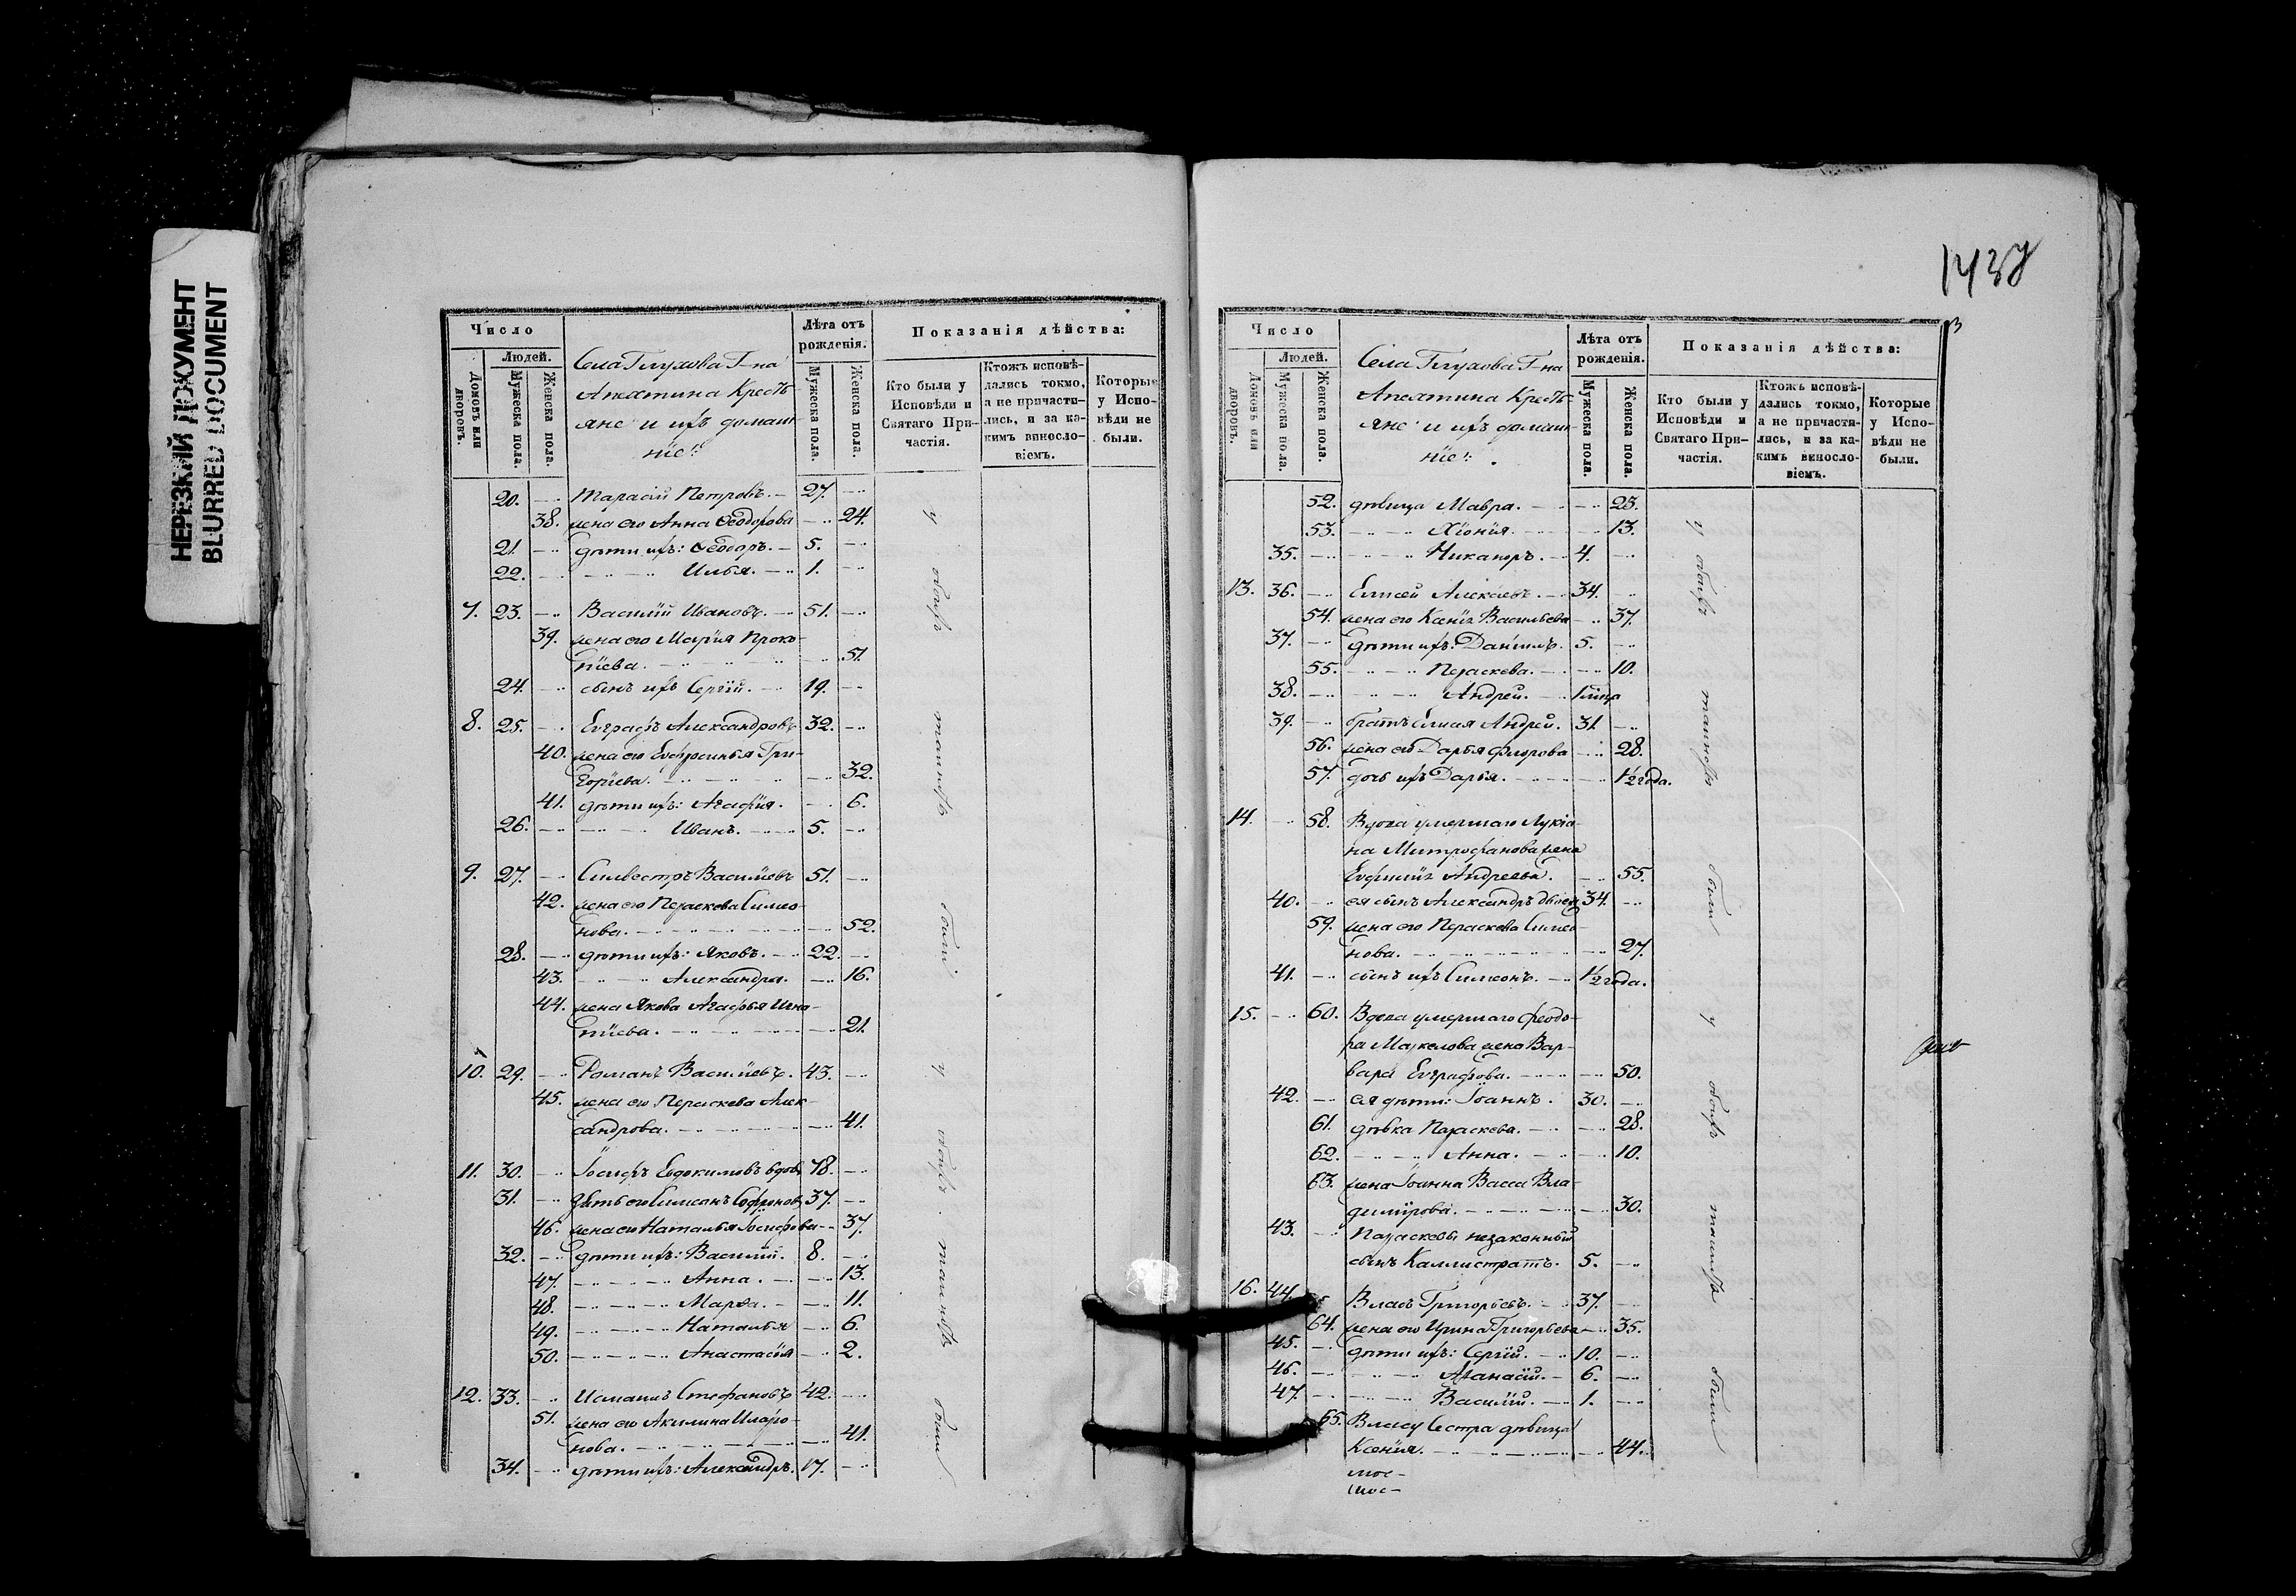 НЕРЕЗКИЙ ДОКУМЕНТ
BLURRED DOCUMENT
Число
Людей.
Домовъ или дворовъ.
Мужеска пола.
Женска пола.
Села Глухова Г-на
Апехтина Кресть-
яне и ихъ домаш-
ніе:
Лѣта отъ рожденія.
Мужеска пола.
Женска пола.
Показанія дѣйства:
Кто были у Исповѣди и Святаго Причастія.
Ктожъ исповѣдались токмо, а не причастились, и за какимъ винословіемъ.
Которые у Исповѣди не были.
20. Тарасій Петровъ. 27.
38. жена его Анна Ѳеодорова 24.
21. дѣти ихъ: Ѳеодоръ. 5.
22. Илья. 1.
7. 23. Василій Ивановъ. 51.
39. жена его Марія Проко-
піева. 51.
24. сынъ ихъ Сергій. 19.
8. 25. Евграфъ Александровъ 32.
40. жена его Евфросинья Гри-
горіева. 32.
41. дѣти ихъ: Агафія. 6.
26. Иванъ. 5.
9. 27. Силвестръ Василіевъ 51.
42. жена его Параскева Симео-
нова. 52.
28. дѣти ихъ: Яковъ. 22.
43. Александра. 16.
44. жена Якова Агафья Игна-
тіева. 21.
10. 29. Романъ Василіевъ. 43.
45. жена его Параскева Алек-
сандрова. 41.
11. 30. Іосифъ Евдокимовъ вдовъ 78.
31. зять его Симеонъ Софроновъ 37.
46. жена его Наталья Іосифова 37.
32. дѣти ихъ: Василій. 8.
47. Анна. 13.
48. Марѳа. 11.
49. Наталья 6.
50. Анастасія 2.
12. 33. Исмаилъ Стефановъ 42.
51. жена его Акилина Иларіо-
нова. 41.
34. дѣти ихъ: Александръ. 17.
у обоихъ таинствъ были
у обоихъ таинствъ были
1437
3
Число
Людей.
Домовъ или дворовъ.
Мужеска пола.
Женска пола.
Села Глухова Г-на
Апехтина Кресть-
яне и ихъ домаш-
ніе:
Лѣта отъ рожденія.
Мужеска пола.
Женска пола.
Показанія дѣйства:
Кто были у Исповѣди и Святаго Причастія.
Ктожъ исповѣдались токмо, а не причастились, и за какимъ винословіемъ.
Которые у Исповѣди не были.
52. дѣвица Мавра. 23.
53. Хіонія. 13.
35. Никаноръ. 4.
13. 36. Елисей Алексѣевъ. 34.
54. жена его Ксенія Васильева 37.
37. дѣти ихъ: Даніилъ. 5.
55. Параскева. 10.
38. Андрей. 1 мѣсц
39. братъ Елисея Андрей. 31.
56. жена его Дарья Флорова 28.
57. дочь ихъ Дарья. 1/2 года.
14. 58. Вдова умершаго Лукіа-
на Митрофанова жена
Евфимія Андреева. 55.
40. ея сынъ Александръ 34.
59. жена его Параскева Симео-
нова. 27.
41. сынъ ихъ Симеонъ. 1/2 года.
15. 60. Вдова умершаго Феодо-
ра Маркелова жена Вар-
вара Евграфова. 50.
42. ея дѣти: Іоаннъ. 30.
61. дѣвка Параскева. 28.
62. Анна. 10.
63. жена Іоанна Васса Вла-
димірова. 30.
43. Параскевы незаконный
сынъ Каллистратъ. 5.
16. 44. Власъ Григорьевъ. 37.
64. жена его Ирина Григорьева 35.
45. дѣти ихъ: Сергій. 10.
46. Аѳанасій. 6.
47. Василій. 1.
65. Власу сестра дѣвица
Ксенія. 44.
у обоихъ таинствъ были
у обоихъ таинствъ были